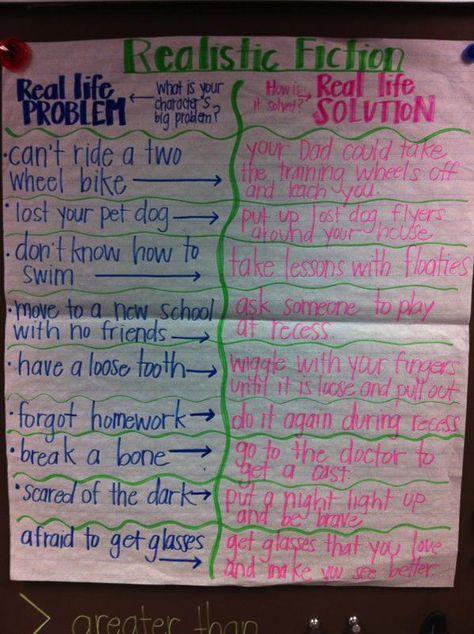 Realistic Fiction
Real life
PROBLEM
what is your
character's
big problem?
How is
it solved?
Real life
SOLUTION
• can't ride a two
wheel bike
your Dad could take
the training wheels off
and teach you.
• lost your pet dog
put up lost dog flyers
around your house
• don't know how to
swim
take lessons with floaties
• move to a new school
with no friends
ask someone to play
at recess.
• have a loose tooth
wiggle with your fingers
until it is loose and pull out
• forgot homework
do it again during recess
• break a bone
go to the doctor to
get a cast.
• scared of the dark
put a night light up
and be brave
afraid to get glasses
get glasses that you love
and make you see better.
> greater than